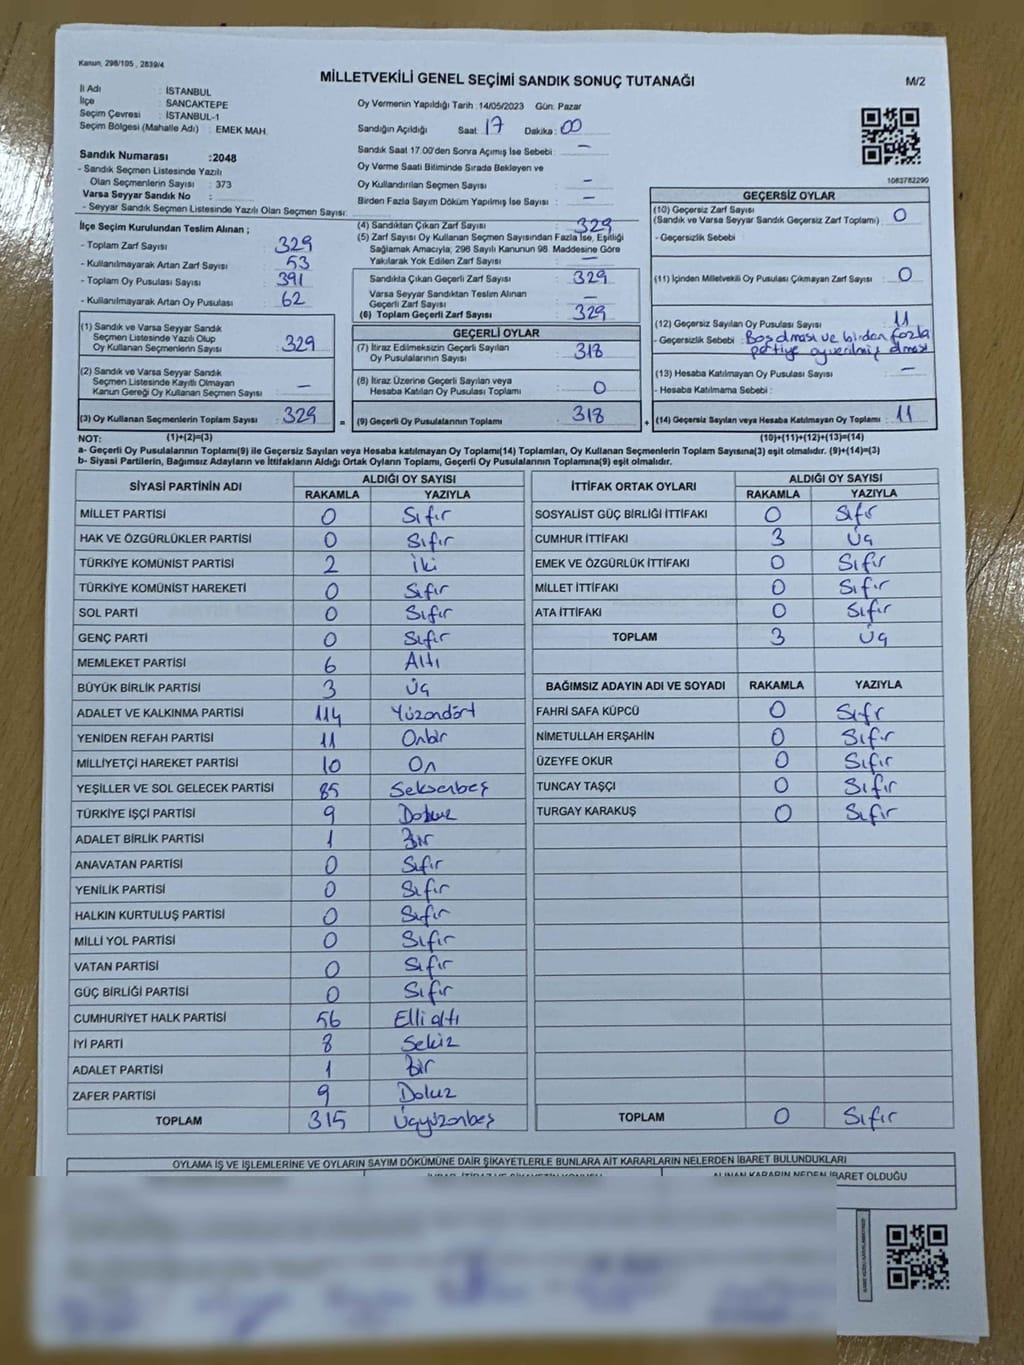 Kanun, 298/105 , 2839/4
MİLLETVEKİLİ GENEL SEÇİMİ SANDIK SONUÇ TUTANAĞI
M/2
İl Adı : İSTANBUL
İlçe : SANCAKTEPE
Seçim Çevresi : İSTANBUL-1
Seçim Bölgesi (Mahalle Adı) : EMEK MAH.
Oy Vermenin Yapıldığı Tarih : 14/05/2023 Gün: Pazar
Sandığın Açıldığı Saat: 17 Dakika : 00
Sandık Saat 17.00'den Sonra Açımış İse Sebebi : –
Oy Verme Saati Bitiminde Sırada Bekleyen ve
Oy Kullandırılan Seçmen Sayısı –
Birden Fazla Sayım Döküm Yapılmış İse Sayısı : –
1083782290
Sandık Numarası : 2048
- Sandık Seçmen Listesinde Yazılı
Olan Seçmenlerin Sayısı : 373
Varsa Seyyar Sandık No :
- Seyyar Sandık Seçmen Listesinde Yazılı Olan Seçmen Sayısı:
İlçe Seçim Kurulundan Teslim Alınan ;
- Toplam Zarf Sayısı : 329
- Kullanılmayarak Artan Zarf Sayısı : 53
- Toplam Oy Pusulası Sayısı : 391
- Kullanılmayarak Artan Oy Pusulası : 62
(1) Sandık ve Varsa Seyyar Sandık
Seçmen Listesinde Yazılı Olup
Oy Kullanan Seçmenlerin Sayısı : 329
(2) Sandık ve Varsa Seyyar Sandık
Seçmen Listesinde Kayıtlı Olmayan
Kanun Gereği Oy Kullanan Seçmen Sayısı : –
(3) Oy Kullanan Seçmenlerin Toplam Sayısı : 329
(4) Sandıktan Çıkan Zarf Sayısı : 329
(5) Zarf Sayısı Oy Kullanan Seçmen Sayısından Fazla İse, Eşitliği
Sağlamak Amacıyla, 298 Sayılı Kanunun 98. Maddesine Göre
Yakılarak Yok Edilen Zarf Sayısı : –
Sandıkta Çıkan Geçerli Zarf Sayısı : 329
Varsa Seyyar Sandıktan Teslim Alınan
Geçerli Zarf Sayısı : –
(6) Toplam Geçerli Zarf Sayısı : 329
GEÇERLİ OYLAR
(7) İtiraz Edilmeksizin Geçerli Sayılan
Oy Pusulalarının Sayısı : 318
(8) İtiraz Üzerine Geçerli Sayılan veya
Hesaba Katılan Oy Pusulası Toplamı : 0
= (9) Geçerli Oy Pusulalarının Toplamı : 318
GEÇERSİZ OYLAR
(10) Geçersiz Zarf Sayısı
(Sandık ve Varsa Seyyar Sandık Geçersiz Zarf Toplamı) : 0
- Geçersizlik Sebebi :
(11) İçinden Milletvekili Oy Pusulası Çıkmayan Zarf Sayısı : 0
(12) Geçersiz Sayılan Oy Pusulası Sayısı : 11
- Geçersizlik Sebebi : Boş olması ve birden fazla
partiye oy verilmiş olması
(13) Hesaba Katılmayan Oy Pusulası Sayısı : –
- Hesaba Katılmama Sebebi :
+ (14) Geçersiz Sayılan veya Hesaba Katılmayan Oy Toplamı : 11
NOT: (1)+(2)=(3) (10)+(11)+(12)+(13)=(14)
a- Geçerli Oy Pusulalarının Toplamı(9) ile Geçersiz Sayılan veya Hesaba katılmayan Oy Toplamı(14) Toplamları, Oy Kullanan Seçmenlerin Toplam Sayısına(3) eşit olmalıdır. (9)+(14)=(3)
b- Siyasi Partilerin, Bağımsız Adayların ve İttifakların Aldığı Ortak Oyların Toplamı, Geçerli Oy Pusulalarının Toplamına(9) eşit olmalıdır.
SİYASİ PARTİNİN ADI ALDIĞI OY SAYISI
RAKAMLA YAZIYLA
MİLLET PARTİSİ 0 Sıfır
HAK VE ÖZGÜRLÜKLER PARTİSİ 0 Sıfır
TÜRKİYE KOMÜNİST PARTİSİ 2 İki
TÜRKİYE KOMÜNİST HAREKETİ 0 Sıfır
SOL PARTİ 0 Sıfır
GENÇ PARTİ 0 Sıfır
MEMLEKET PARTİSİ 6 Altı
BÜYÜK BİRLİK PARTİSİ 3 Üç
ADALET VE KALKINMA PARTİSİ 114 Yüzondört
YENİDEN REFAH PARTİSİ 11 Onbir
MİLLİYETÇİ HAREKET PARTİSİ 10 On
YEŞİLLER VE SOL GELECEK PARTİSİ 85 Seksenbeş
TÜRKİYE İŞÇİ PARTİSİ 9 Dokuz
ADALET BİRLİK PARTİSİ 1 Bir
ANAVATAN PARTİSİ 0 Sıfır
YENİLİK PARTİSİ 0 Sıfır
HALKIN KURTULUŞ PARTİSİ 0 Sıfır
MİLLİ YOL PARTİSİ 0 Sıfır
VATAN PARTİSİ 0 Sıfır
GÜÇ BİRLİĞİ PARTİSİ 0 Sıfır
CUMHURİYET HALK PARTİSİ 56 Elli altı
İYİ PARTİ 8 Sekiz
ADALET PARTİSİ 1 Bir
ZAFER PARTİSİ 9 Dokuz
TOPLAM 315 Üçyüzonbeş
İTTİFAK ORTAK OYLARI ALDIĞI OY SAYISI
RAKAMLA YAZIYLA
SOSYALİST GÜÇ BİRLİĞİ İTTİFAKI 0 Sıfır
CUMHUR İTTİFAKI 3 Üç
EMEK VE ÖZGÜRLÜK İTTİFAKI 0 Sıfır
MİLLET İTTİFAKI 0 Sıfır
ATA İTTİFAKI 0 Sıfır
TOPLAM 3 Üç
BAĞIMSIZ ADAYIN ADI VE SOYADI RAKAMLA YAZIYLA
FAHRİ SAFA KÜPCÜ 0 Sıfır
NİMETULLAH ERŞAHİN 0 Sıfır
ÜZEYFE OKUR 0 Sıfır
TUNCAY TAŞÇI 0 Sıfır
TURGAY KARAKUŞ 0 Sıfır
TOPLAM 0 Sıfır
OYLAMA İŞ VE İŞLEMLERİNE VE OYLARIN SAYIM DÖKÜMÜNE DAİR ŞİKAYETLERLE BUNLARA AİT KARARLARIN NELERDEN İBARET BULUNDUKLARI
ALINAN KARARIN NEDEN İBARET OLDUĞU